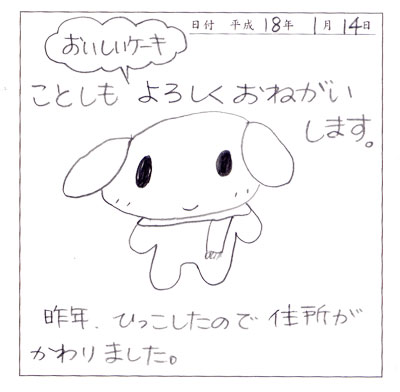 日付 平成18年 1月 14日
おいしいケーキ
ことしも よろしくおねがい
します。
昨年、ひっこしたので 住所が
かわりました。